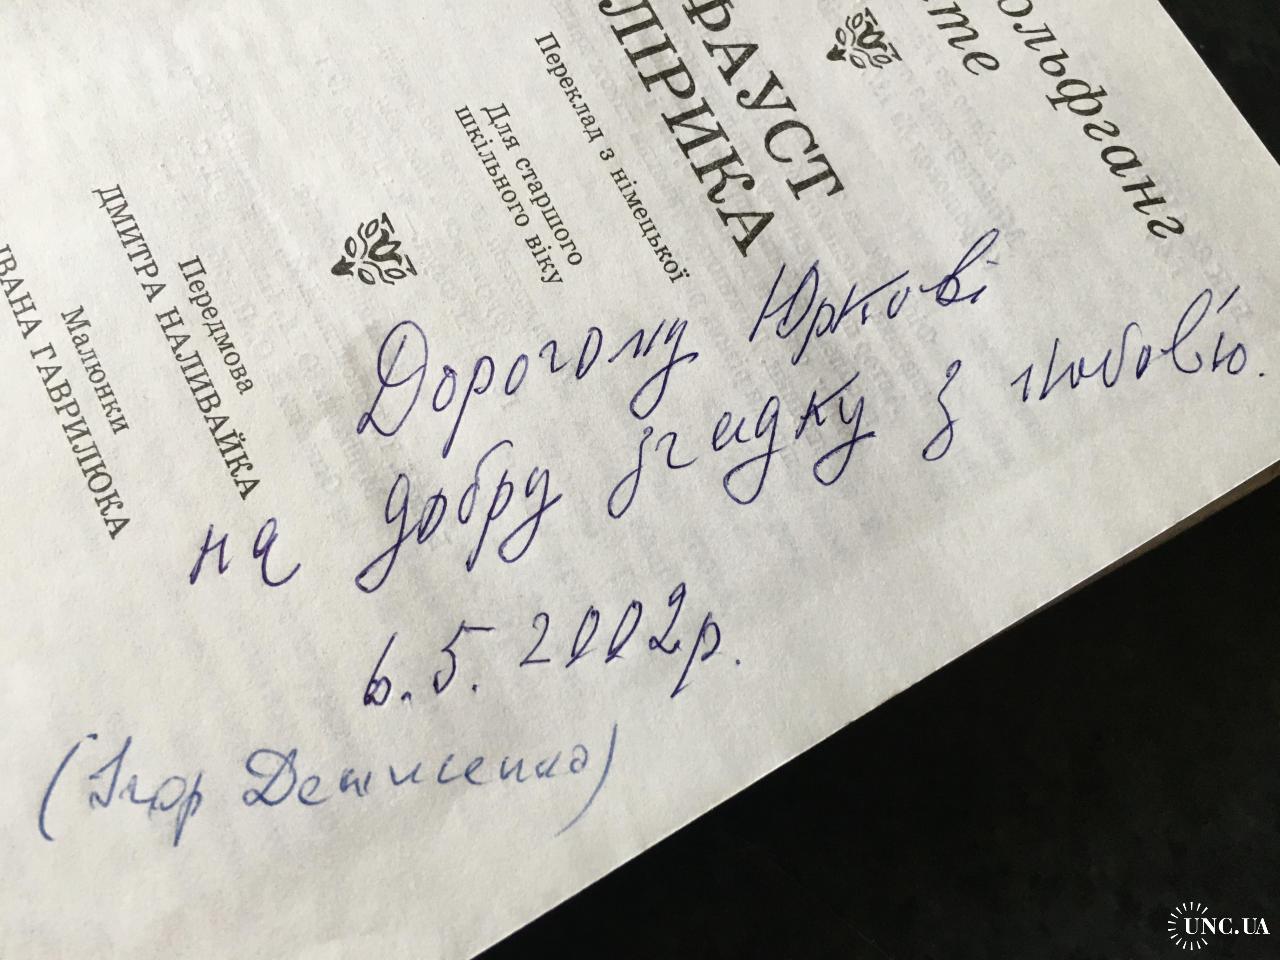 ольфганг
те
ФАУСТ
ЛІРИКА
Переклад з німецької
Для старшого
шкільного віку
Передмова
ДМИТРА НАЛИВАЙКА
Малюнки
ІВАНА ГАВРИЛЮКА
Дорогому Юркові
на добру згадку з любов'ю.
6.5.2002р.
(Ігор Денисенко)
UNC.UA